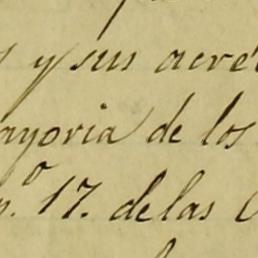 y sus acré
ayoria de los
n.º 17. de las